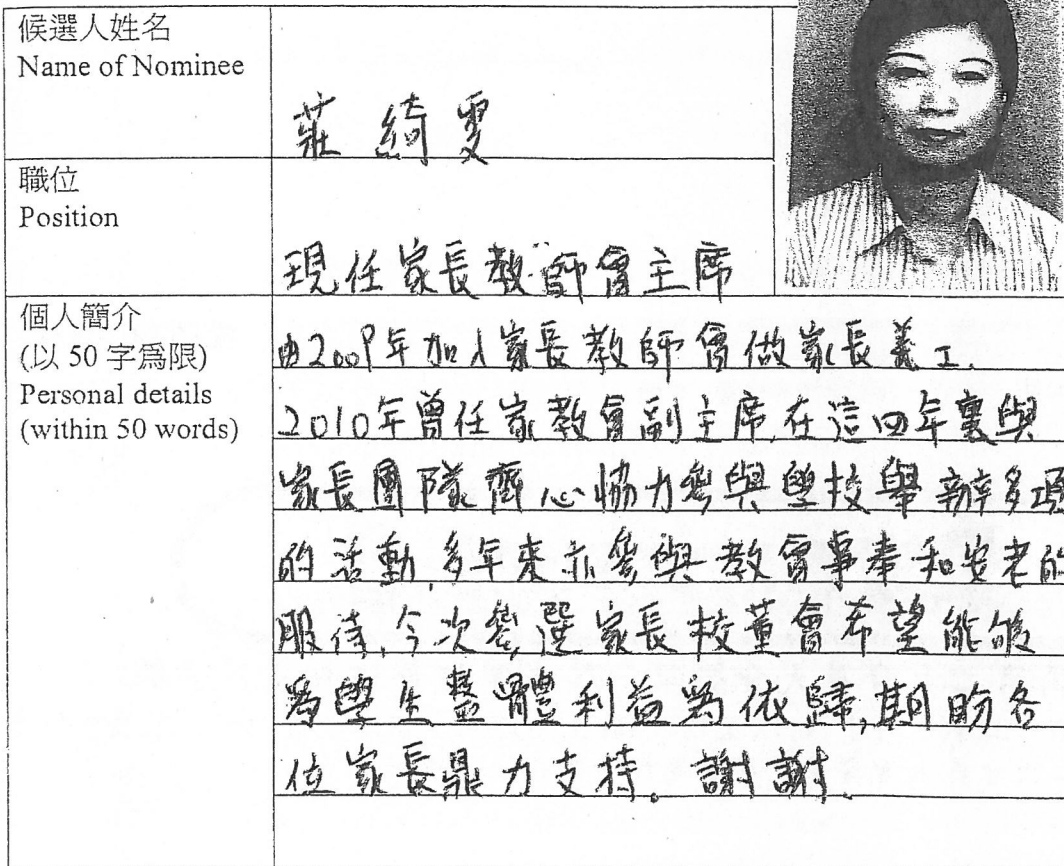 候選人姓名
Name of Nominee
莊綺雯
職位
Position
現任家長教師會主席
個人簡介
(以 50 字為限)
Personal details
(within 50 words)
由2009年加入家長教師會做家長義工.
2010年曾任家教會副主席,在這四年裏與
家長團隊齊心協力參與學校舉辦多項
的活動,多年來亦參與教會事奉和安老的
服侍,今次參選家長校董會希望能夠
為學生整體利益為依歸,期盼各
位家長鼎力支持。謝謝.